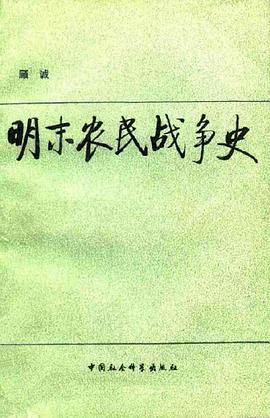 顾诚
明末农民战争史
中国社会科学出版社